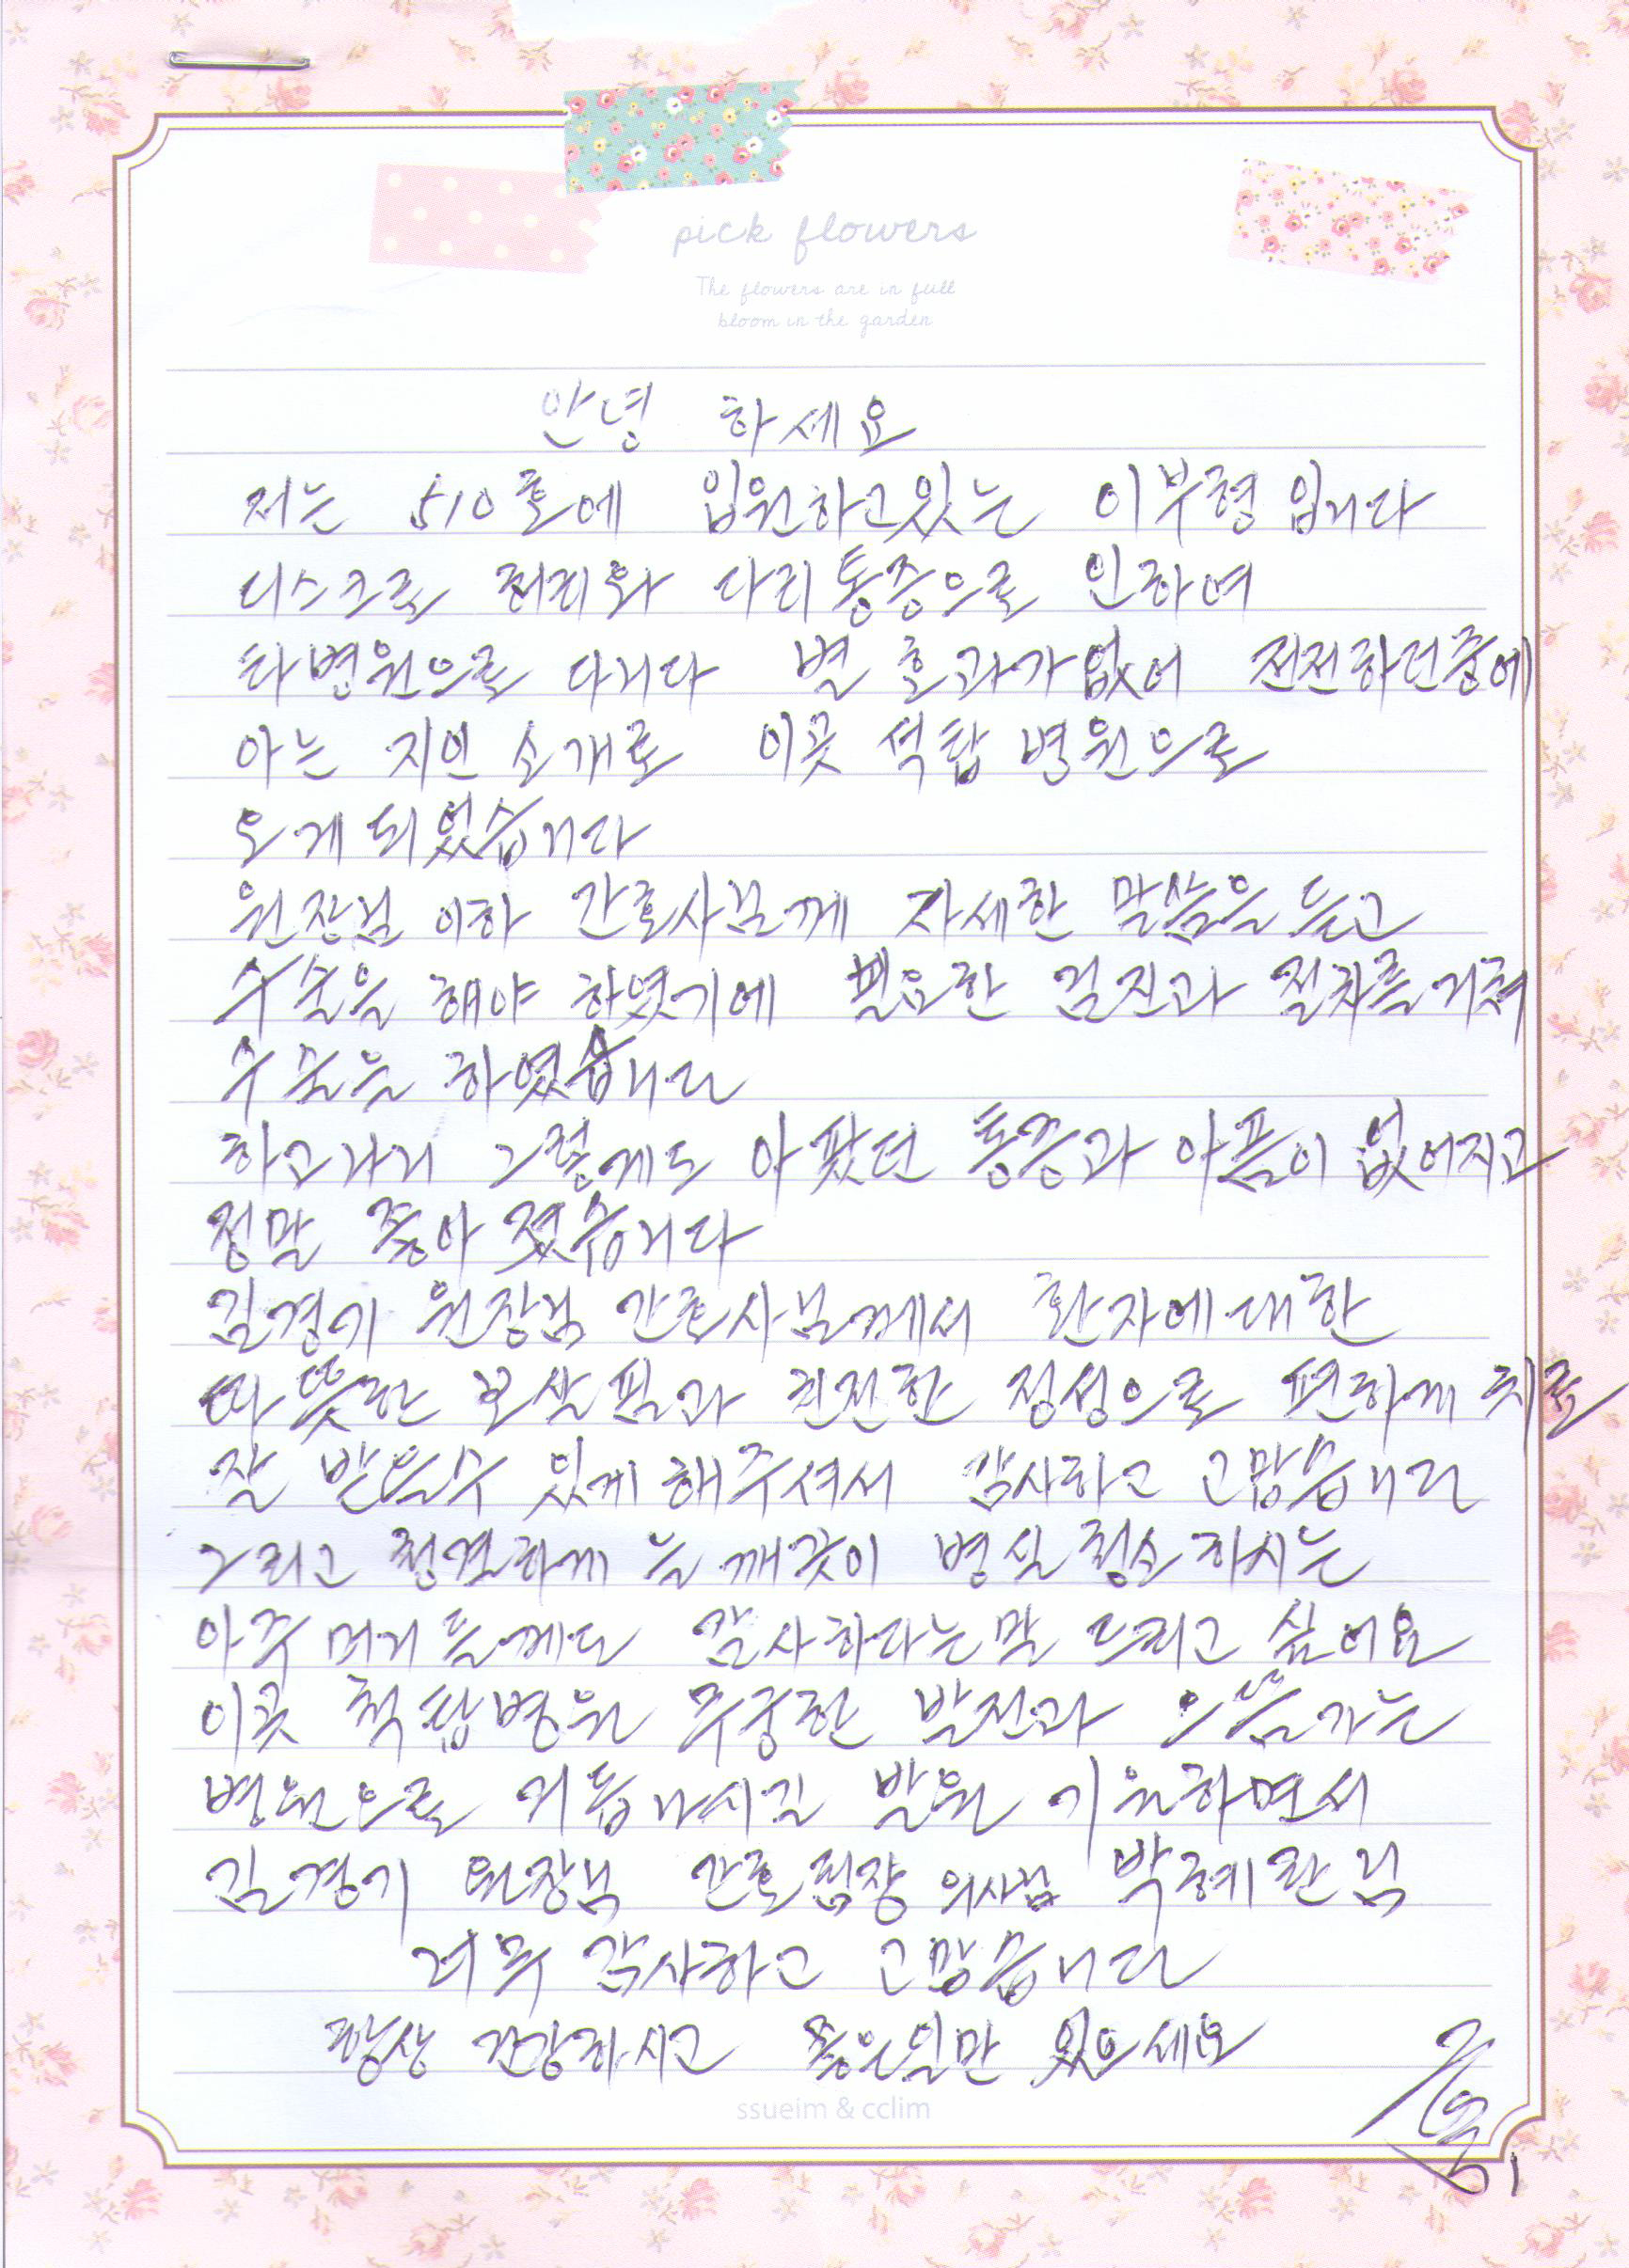 pick flowers
The flowers are in full
bloom in the garden
안녕 하세요
저는 510호에 입원하고있는 이부형 입니다
디스크로 허리와 다리통증으로 인하여
타병원으로 다니다 별 효과가없어 전전하던중에
아는 지인 소개로 이곳 척탑 병원으로
오게 되었습니다
원장님 이하 간호사님께 자세한 말씀을 듣고
수술을 해야 하였기에 필요한 검진과 절차를거쳐
수술을 하였습니다
하고나니 그렇게도 아팠던 통증과 아픔이 없어지고
정말 좋아 졌습니다
김경기 원장님 간호사님께서 환자에대한
따뜻한 보살핌과 친절한 정성으로 편하게 치료
잘 받을수 있게해주셔서 감사하고 고맙습니다
그리고 청결하게 늘깨끗이 병실청소하시는
아주머니들께도 감사하다는말 드리고 싶어요
이곳 척탑병원 무궁한 발전과 으뜸가는
병원으로 거듭나시길 발원 기원하면서
김경기 원장님 간호팀장 의사님 박혜란님
너무 감사하고 고맙습니다
항상 건강하시고 좋은일만 있으세요
ssueim & cclim